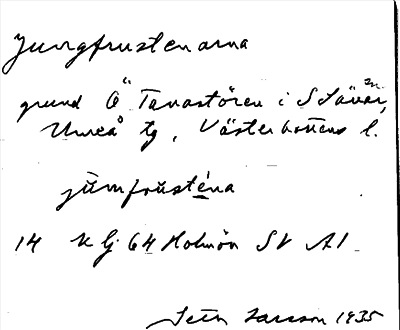 Jungfrustenarna
grund Ö Tavastören i S Sävar,
Umeå tg, Västerbottens l.
jūmfrūsténa
14 KG 64 Holmön SV A1
Sten Larsson 1935